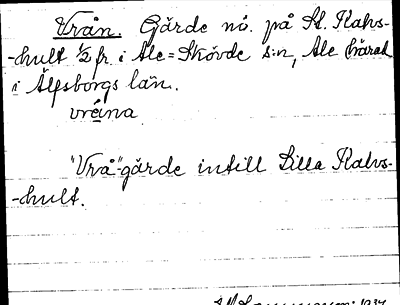 Vrån. Gärde nö. på St. Kalvs-
-hult ½ fr. i Ale=Skövde s:n, Ale härad
i Älfsborgs län.
vrå̄na
"Vrå"gärde intill Lilla Kalvs-
-hult.
1934